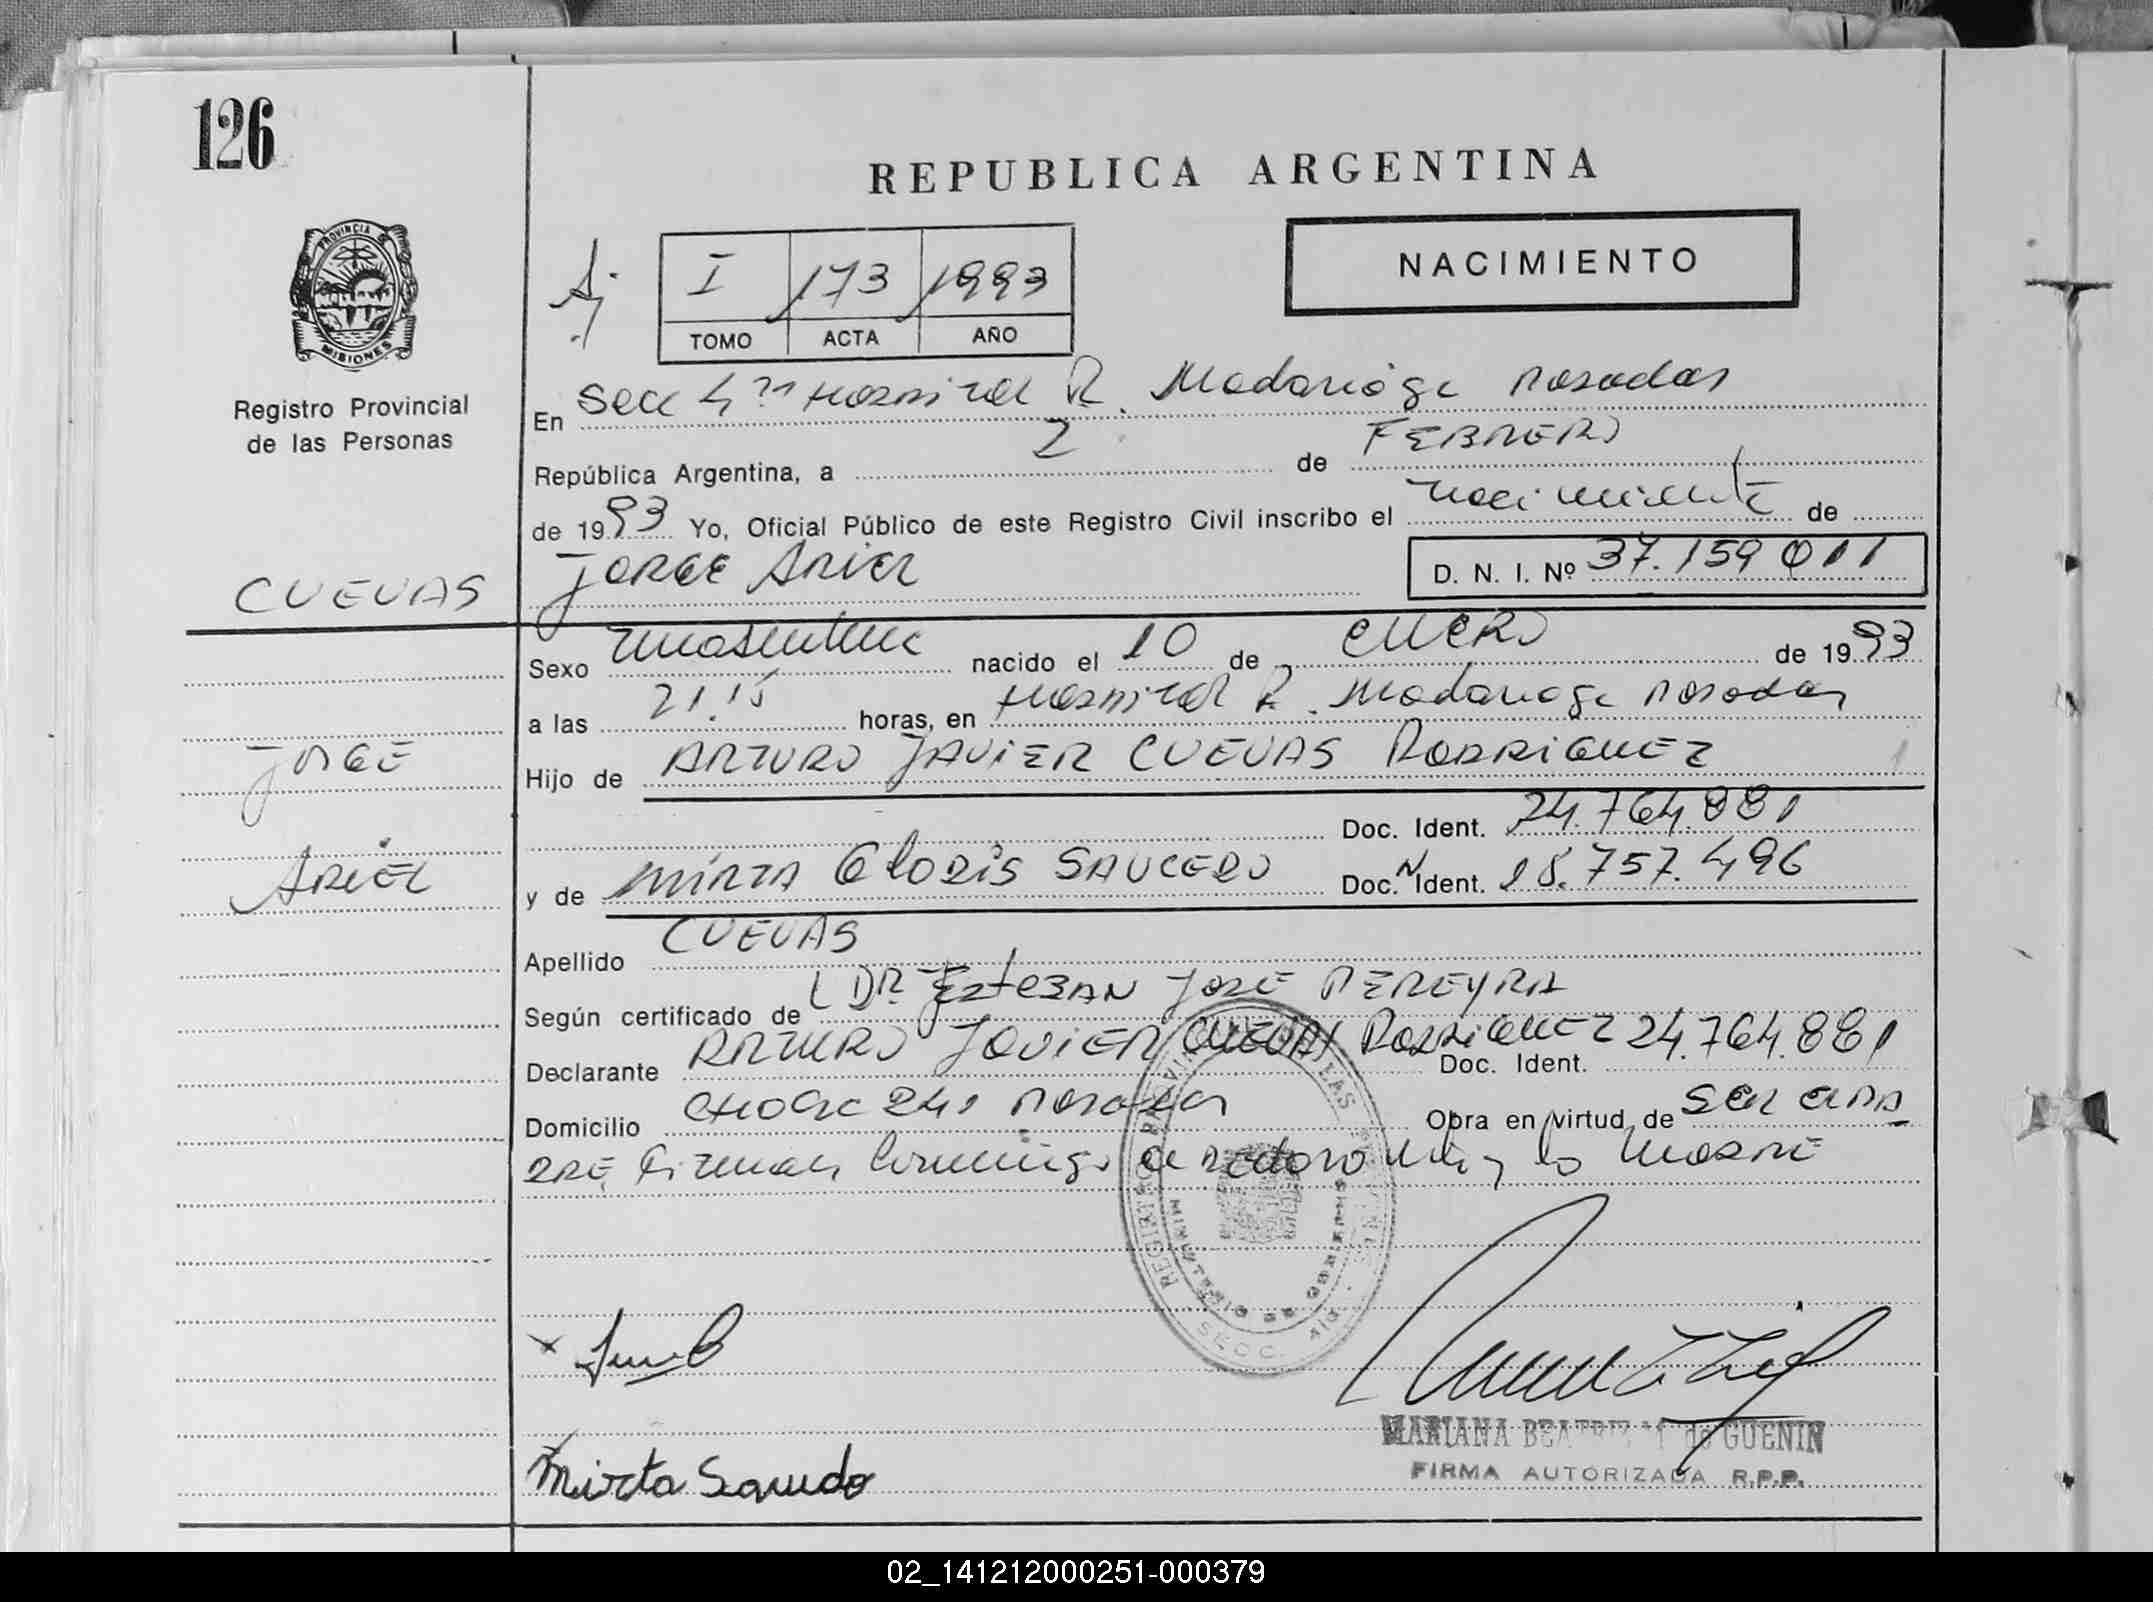 126
REPUBLICA ARGENTINA
PROVINCIA DE
MISIONES
Registro Provincial
de las Personas
I 173 1993
TOMO ACTA AÑO
NACIMIENTO
En Secc 4ta Hospital R. Madariaga Posadas
República Argentina, a 2 de FEBRERO
de 1993 Yo, Oficial Público de este Registro Civil inscribo el nacimiento de
CUEVAS
JORGE ARIEL D. N. I. Nº 37.159 011
Sexo masculino nacido el 10 de ENERO de 1993
a las 21.15 horas, en Hospital R. Madariaga Posadas
JORGE
Hijo de ARTURO JAVIER CUEVAS RODRIGUEZ
Doc. Ident. 24.764.881
ARIEL
y de MIRTA GLORIS SAUCEDO Doc. N Ident. 18.757.496
Apellido CUEVAS
Según certificado de DR. ESTEBAN JOSE PEREYRA
Declarante ARTURO JAVIER CUEVAS RODRIGUEZ Doc. Ident. 24.764.881
Domicilio 240 Posadas Obra en virtud de SER EL PA
DRE, Firman conmigo el declarante y la MADRE
Mirta Saucedo
MARIANA BEATRIZ M de GUENIN
FIRMA AUTORIZADA R.P.P.
02_141212000251-000379